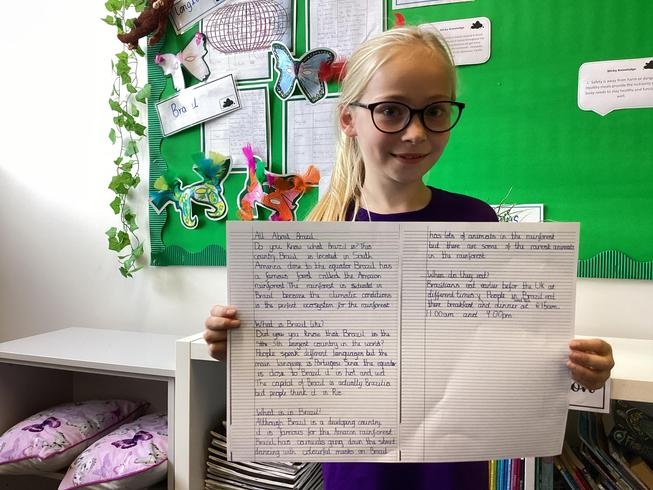 Brazil
Sticky Knowledge
All About Brazil
Do you know what Brazil is? this
country, Brazil is located in South
America close to the equator Brazil has
a famous forest called the Amazon
rainforest. The rainforest is situated in
Brazil because the climatic conditions
is the perfect ecosystem for the rainforest.
What is Brazil like?
Did you you know that Brazil is the
5th largest country in the world?
People speak different languages but the
main language is Portugese. Since the equator
is close to Brazil it is hot and wet.
The capital of Brazil is actually Brazilia
but people think it is Rio.
What is in Brazil?
Although Brazil is a developing country,
it is famous for the Amazon rainforest.
Brazil has carnivals going down the street
dancing with colourful masks on. Brazil
has lots of animals in the rainforest
but there are some of the rarest animals
in the rainforest.
When do they eat?
Brazilians eat earlier befor the UK at
different times. People in Brazil eat
there breakfast and dinner at 6:15am,
11:00am and 4:00pm.